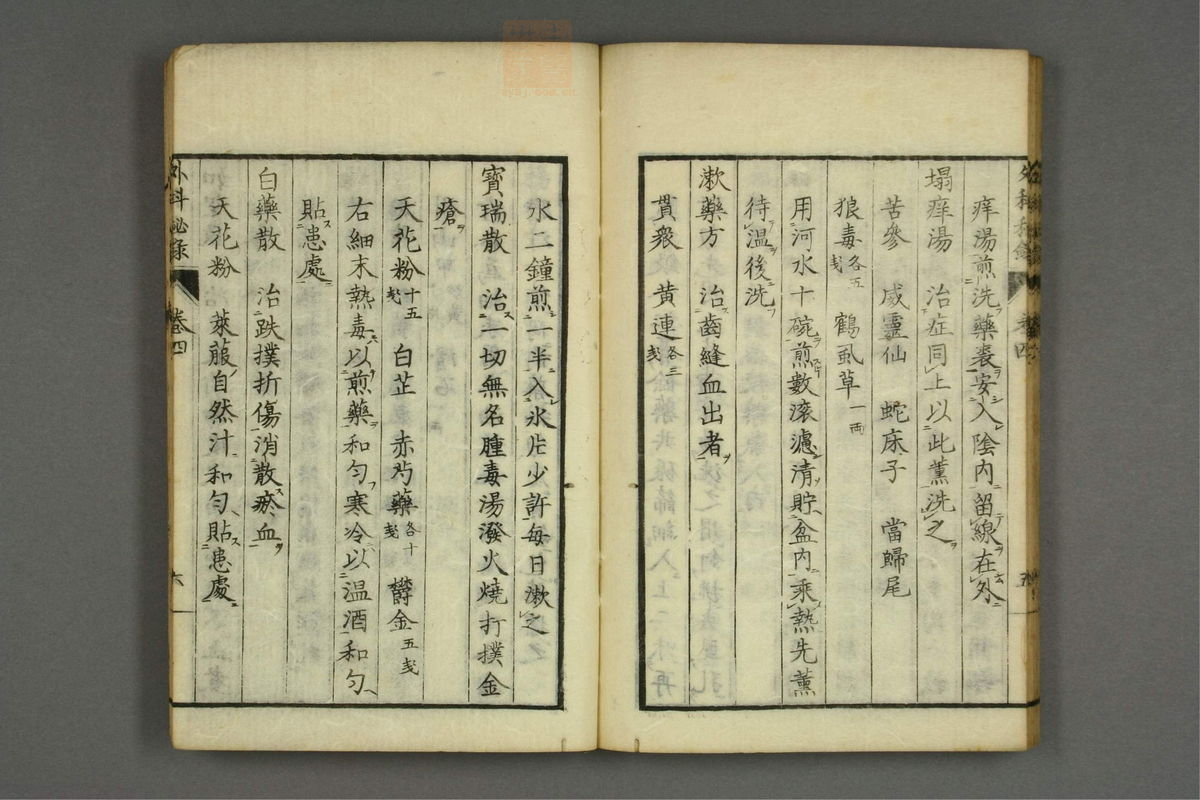 痒湯煎洗藥裹安入陰内留線在外
塌痒湯　治症同上以此薰洗之
苦參　威靈仙　蛇床子　當歸尾
狼毒各五戔　鶴虱草一両
用河水十碗煎數滚濾清貯盆内乘熱先薰
待温後洗
漱藥方　治齒縫血出者
貫衆　黄連各三戔
外科秘錄　卷四　五
水二鐘煎一半入氷片少許毎日漱之
寳瑞散　治一切無名腫毒湯潑火燒打撲金
瘡
天花粉十五戔　白芷　赤芍藥各十戔　欝金五戔
右細末熱毒以煎藥和匀寒冷以温酒和匀
貼患處
白藥散　治跌撲折傷消散瘀血
天花粉　萊菔自然汁和匀貼患處
外科秘錄　卷四　六